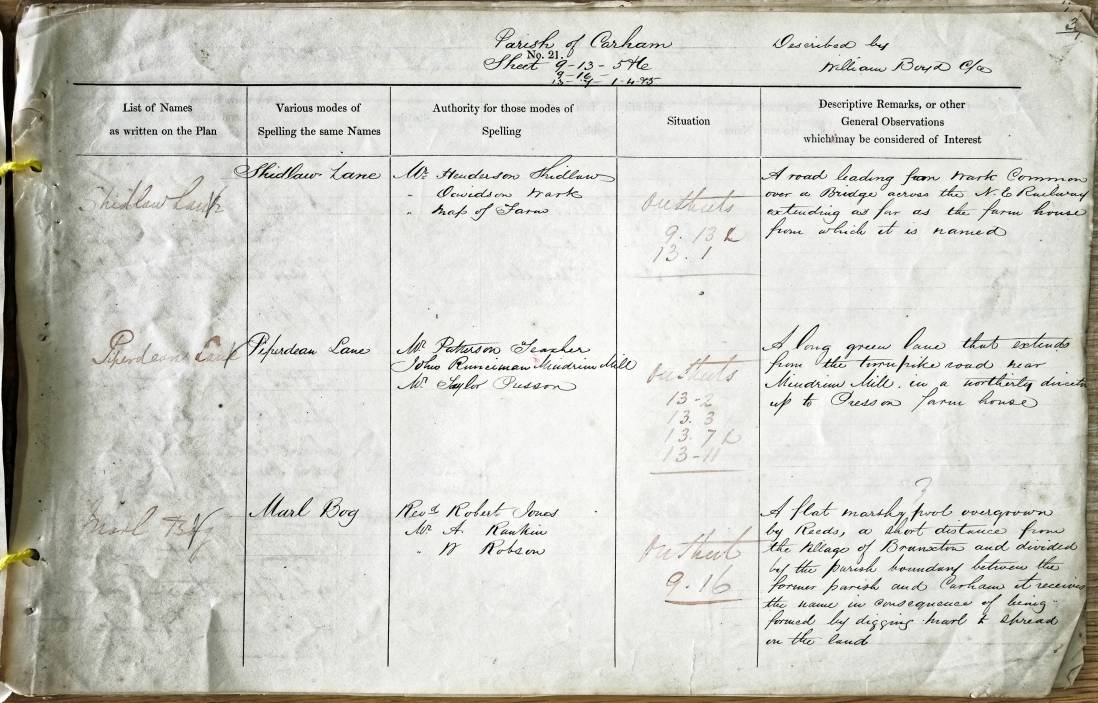 3
Parish of Carham
Described by
No. 21.
Sheet 9-13-5
William Boyd C/a
9-16-
List of Names
as written on the Plan
Various modes of
Spelling the same Names
Authority for those modes of
Spelling
Situation
Descriptive Remarks, or other
General Observations
which may be considered of Interest
Shidlaw Lane
Shidlaw Lane
Mr. Henderson Shidlaw
" Davidson Wark
" Map of Farm
On Sheets
9. 13
13. 1
A road leading from Wark Common
over a Bridge across the N. E Railway
extending as far as the farm house
from which it is named
Piperdean Lane
Piperdean Lane
Mr. Paterson Teacher
John Runciman Mindrim Mill
Mr. Taylor Presson
On Sheets
13-2
13. 3
13. 7
13-11
A long green lane that extends
from the turnpike road near
Mindrim Mill. in a northerly directn
up to Presson farm house
Marl Bog
Marl Bog
Revd Robert Jones
Mr. A. Rankin
" W Robson
On Sheet
9. 16
?
A flat marshy pool overgrown
by Reeds, a short distance from
the Village of Brunxton and divided
by the parish boundary between the
former parish and Carham it receives
the name in consequence of being
formed by digging marl to spread
on the land